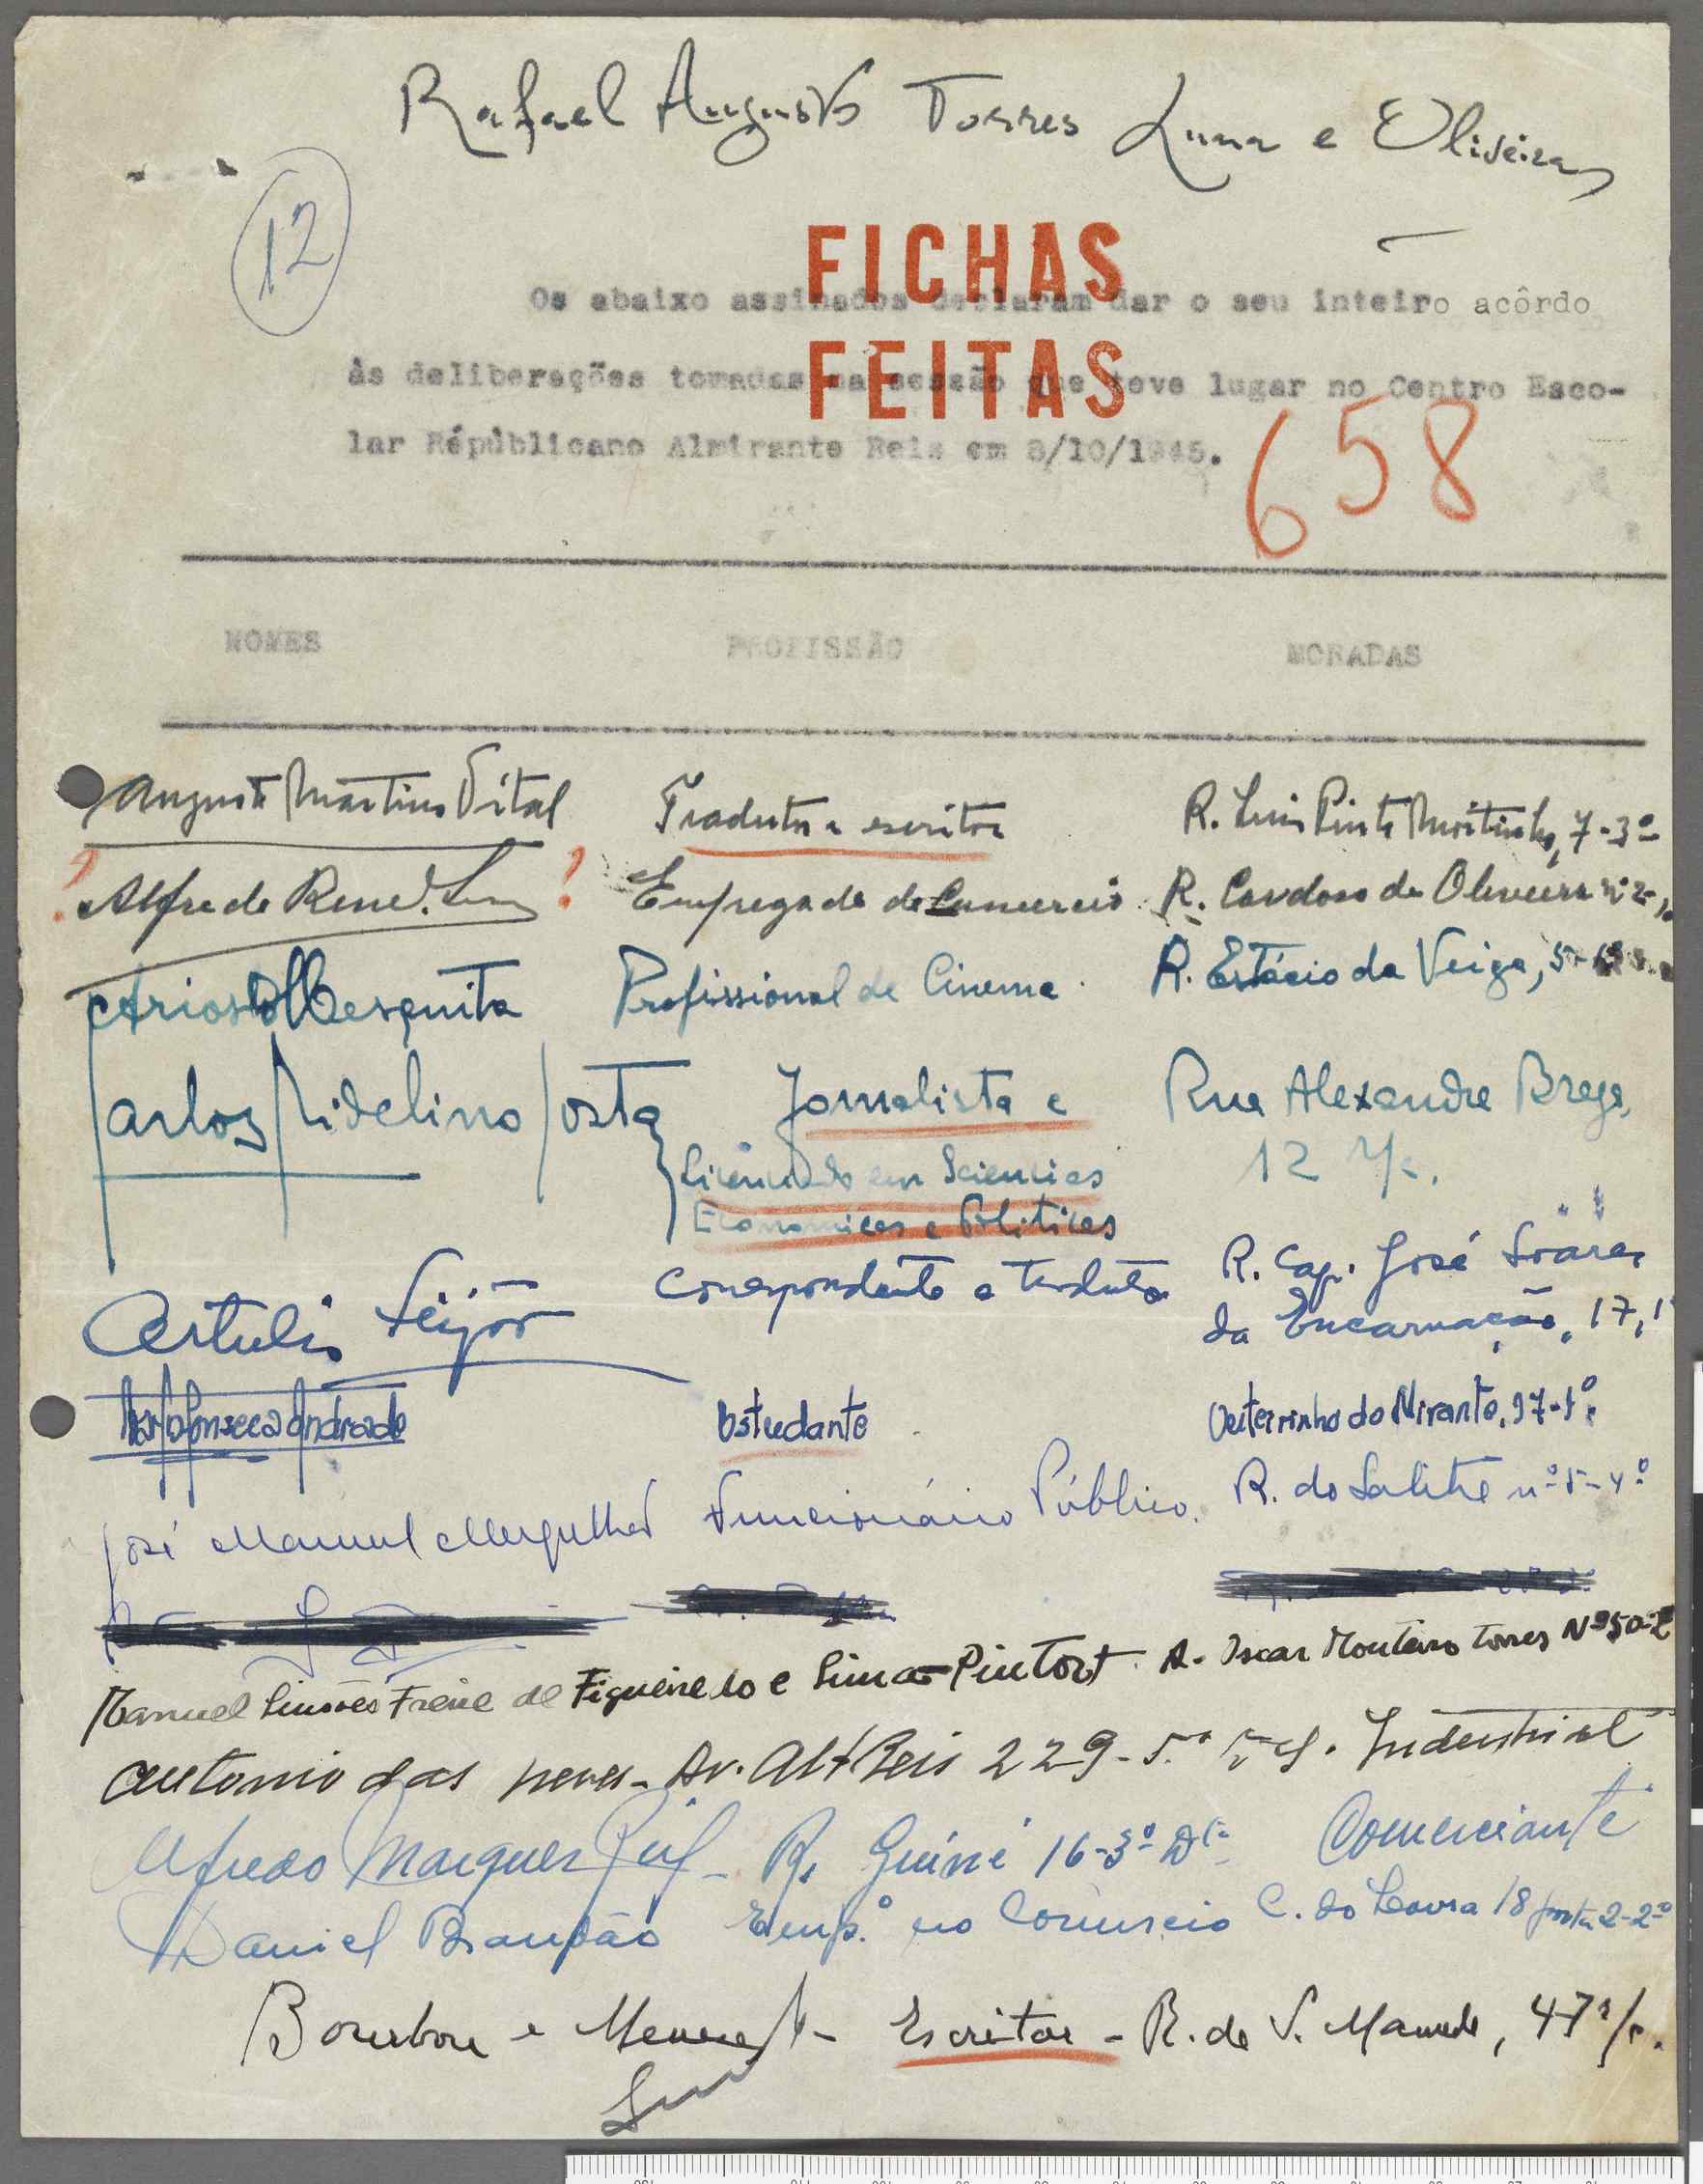 Rafael Augusto Torres Luna e Oliveira
12
FICHAS
Os abaixo assinados declaram dar o seu inteiro acôrdo
FEITAS
às deliberações tomadas na sessão que teve lugar no Centro Esco-
lar Républicano Almirante Reis em 8/10/1945.
658
NOMES PROFISSÃO MORADAS
Augusto Martins Vital Tradutor e escritor R. Luis Pinto Moitinho, 7-3º
! Alfredo René ! Empregado de Comercio R. Cardoso de Oliveira nº 2
Ariosto Mesquita Profissional de Cinema R. Estácio da Veiga, 5
Carlos Fidelino Costa Jornalista e Rua Alexandre Braga,
Licenciado em Sciencias 12
Economicas e Politicas
Correspondente e tradutor R. Cap. José Soares
da Encarnação, 17, 1
Fonseca Andrade Estudante Outeirinho do Mirante, 37-1º
José Manuel Mergulhão Funcionário Público. R. do Salitre nº 5-4º
Manuel Simões Freire de Figueiredo e Lima - Pintor A. Oscar Monteiro Torres Nº 50-2
Antonio das Neves - Av. Alt Reis 229-5º Esq. Industrial
Alfredo Marques - R. Guiné 16-3º Dtº Comerciante
Daniel Brandão Empº no Comercio C. do Lavra 18 porta 2-2º
Bourbon e Meneses - Escritor - R. de S. Mamede, 47